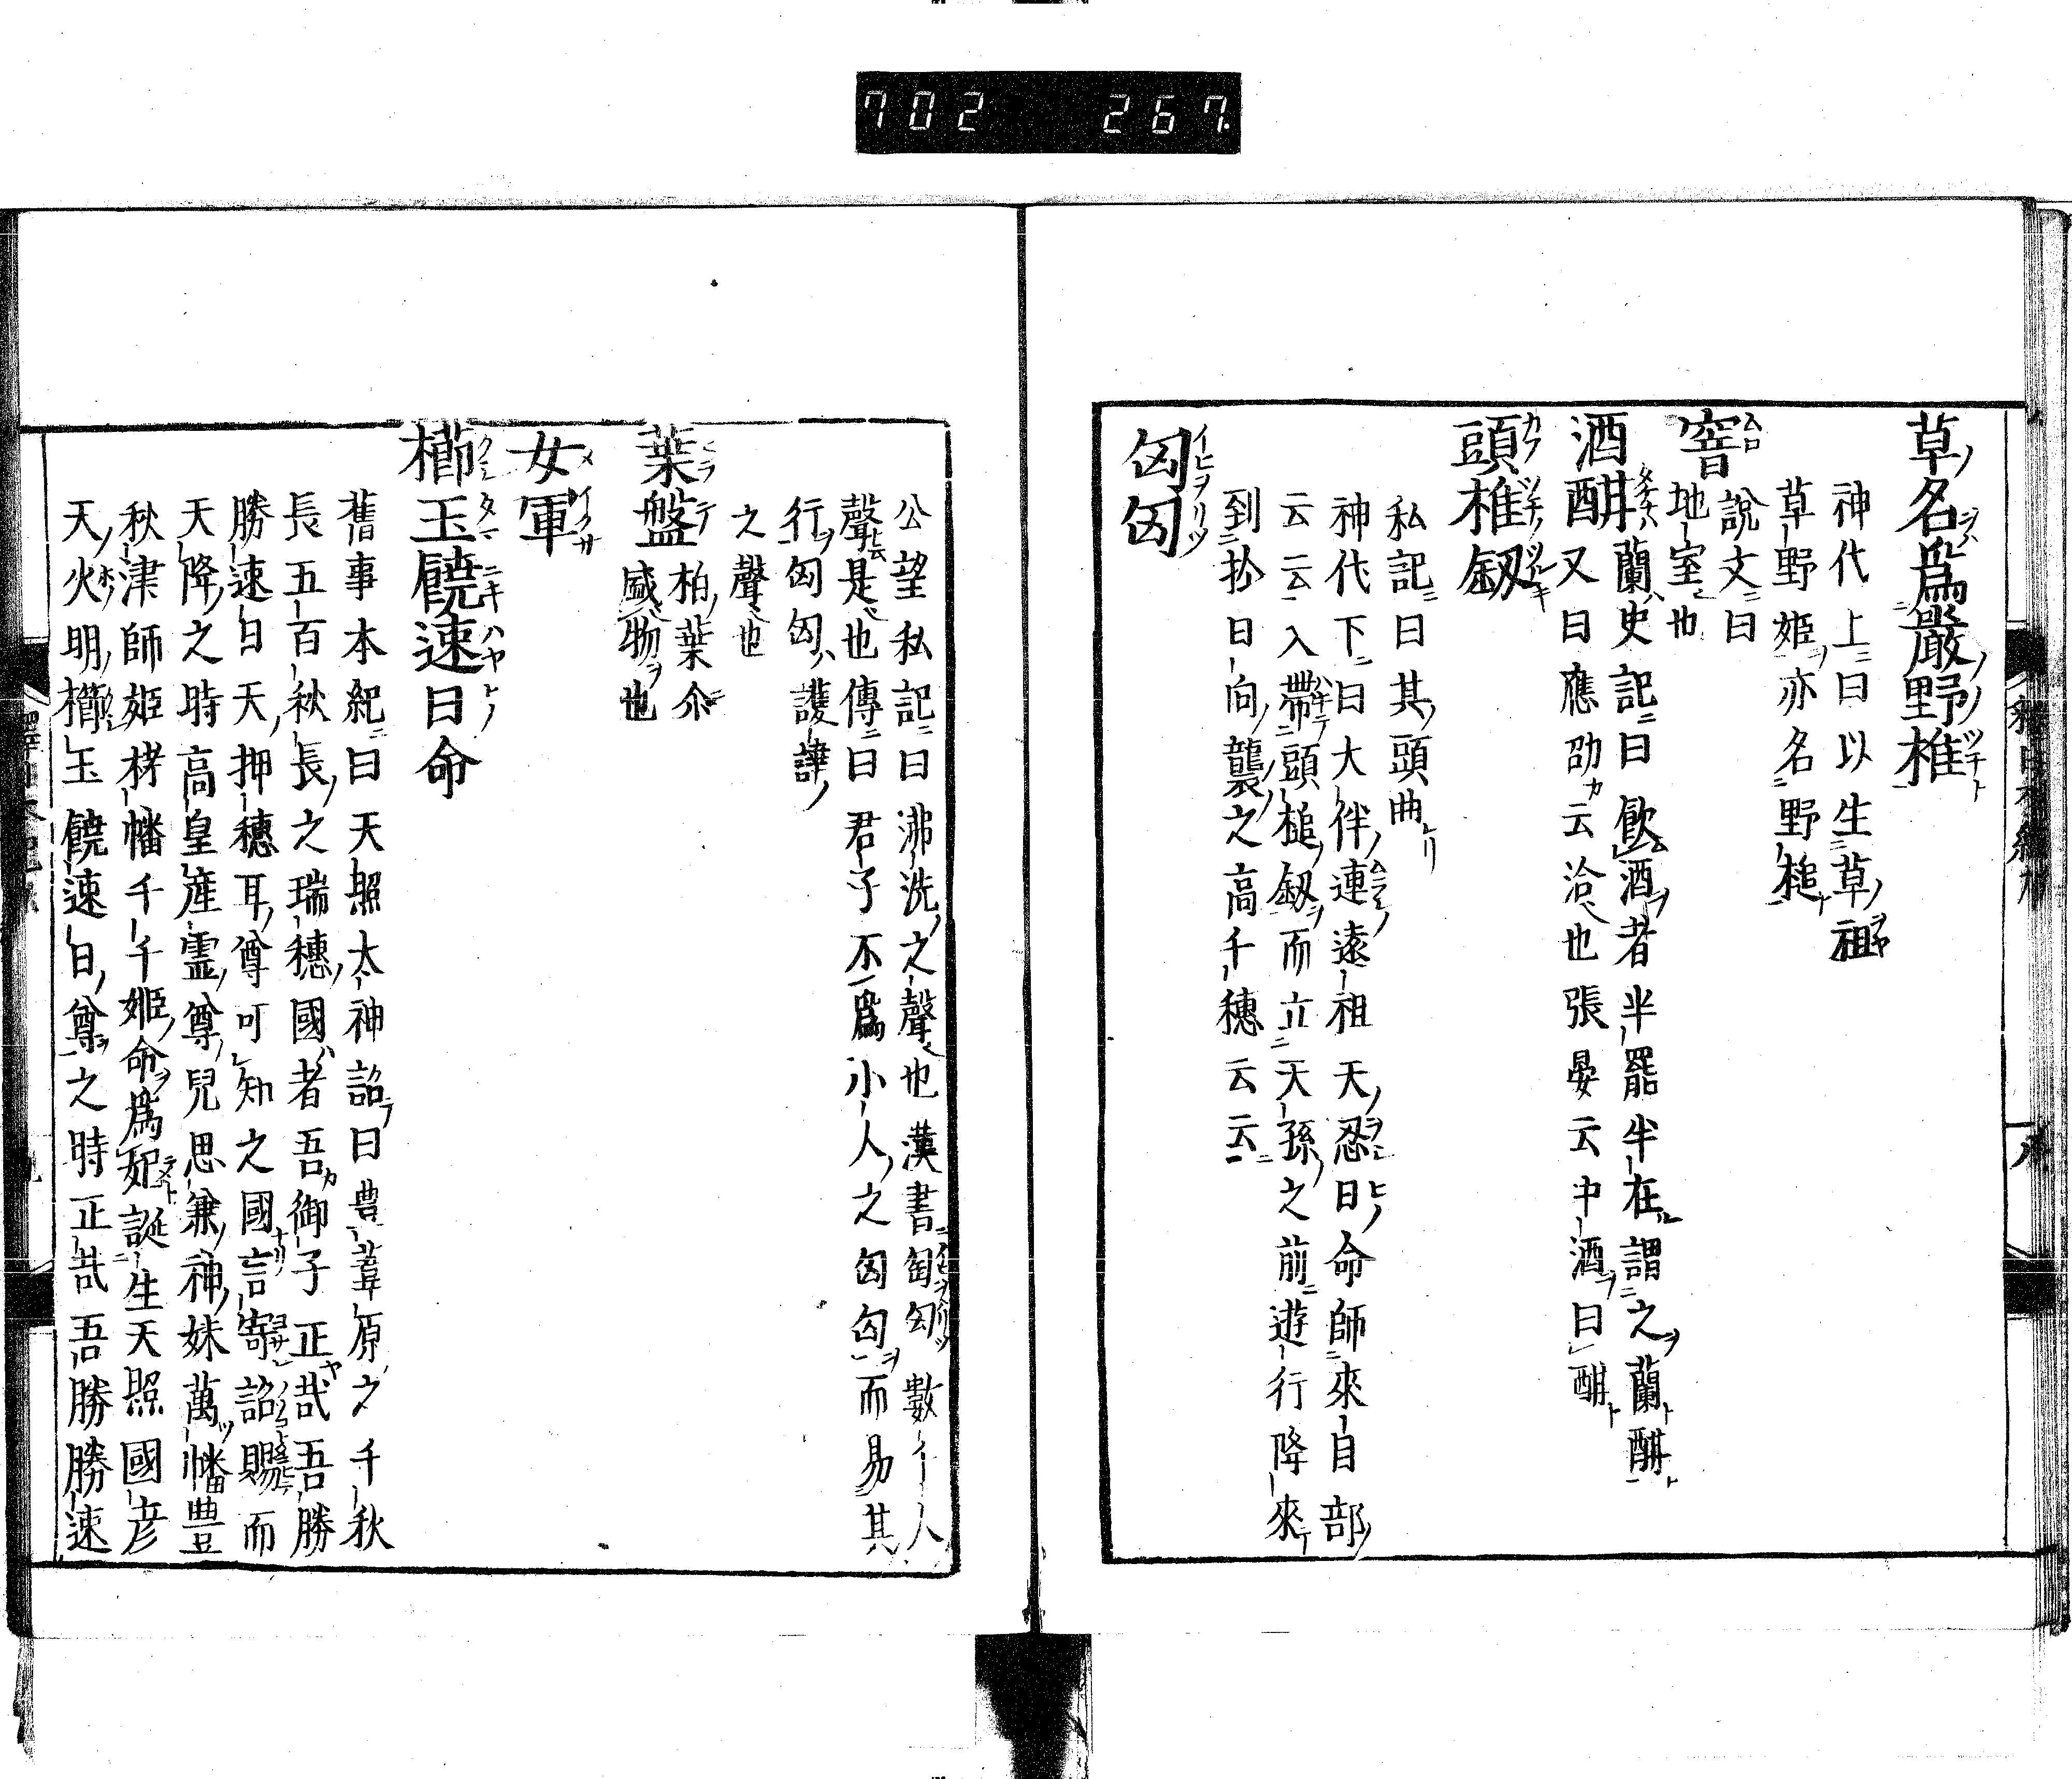 702 267
草名爲嚴野椎
神代上曰以生草祖
草野姫亦名野槌
窨
說文曰
地室也
酒酣
蘭史記曰飲酒者半罷半在謂之蘭酣
又曰應劭云洽也張晏云中酒曰酣
頭椎釼
私記曰其頭曲
神代下曰大伴連遠祖天忍日命師來自部
云云入帶頭槌釼而立天孫之前遊行降來
到於日向襲之高千穗云云
匈匈
公望私記曰沸洗之聲也漢書匈匈數千人
聲是也傳曰君子不爲小人之匈匈而易其
行匈匈護譁
之聲也
葉盤
柏葉尒
盛物也
女軍
櫛玉饒速日命
舊事本紀曰天照太神詔曰豊葦原之千秋
長五百秋長之瑞穗國者吾御子正哉吾勝
勝速日天押穗耳尊可知之國言寄詔賜而
天降之時高皇産霊尊兒思兼神妹萬幡豊
秋津師姫栲幡千千姫命爲妃誕生天照國彦
天火明櫛玉饒速日尊之時正哉吾勝勝速